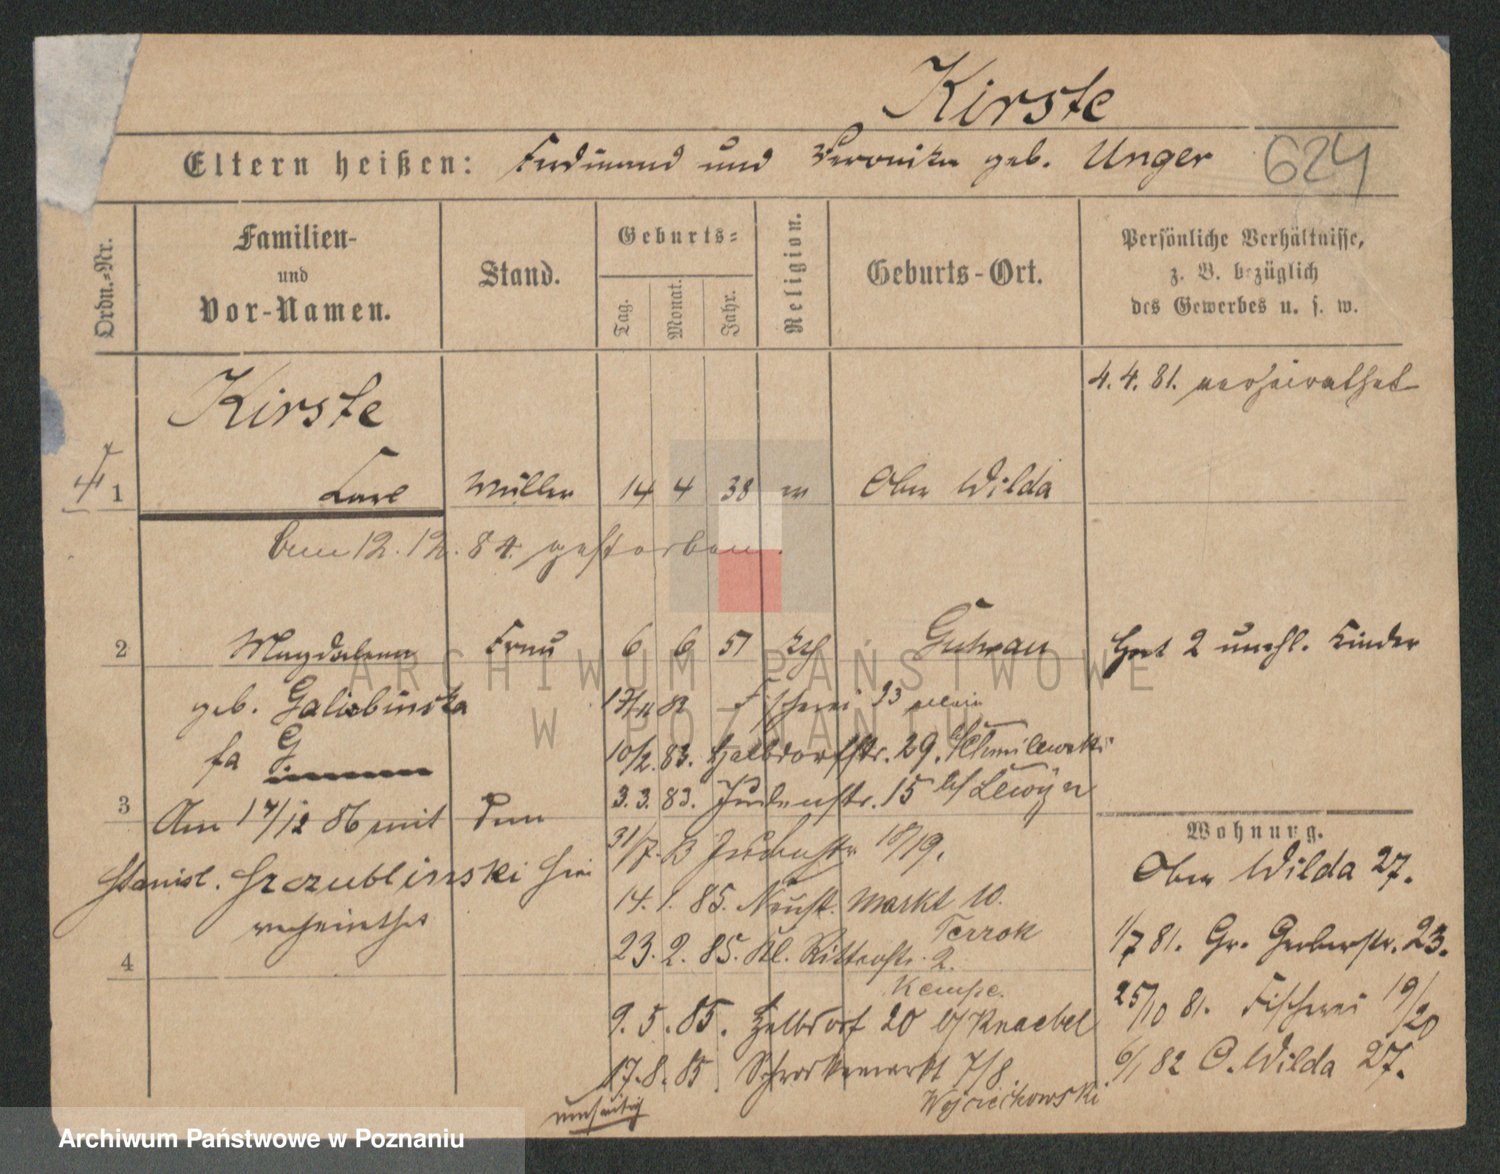 Kirste
Eltern heißen: Ferdinand und Veronika geb. Unger
624
Ordn.-Nr.
Familien-
und
Vor-Namen.
Stand.
Geburts-
Tag.
Monat.
Jahr.
Religion.
Geburts-Ort.
Persönliche Verhältnisse,
z. B. bezüglich
des Gewerbes u. s. w.
4. 4. 81. verheirathet
Kirste
1 Carl Müller 14 4 38 Ober Wilda
12. 12. 84. gestorben.
2 Magdalena Frau 6 6 51 Gurhau Hat 2 unehl. Kinder
geb. Galiebinska
17/11 82 Fischerei 23 allein
10/2. 83. Halbdorfstr. 29. b/ Chmilewski
3.3.83. Judenstr. 15 b/ Lewyn
3
Am 17/12 86 mit dem
Stanisl. Szczublinski hier
verheirathet
31/7. 83 Judenstr 18/19.
14. 1. 85. Neust. Markt 10.
Terrok
23. 2. 85. Kl. Ritterstr. 2.
Kempe.
9. 5. 85. Halbdorf 20 b/ Knaebel
17. 8. 85. Schrodkamarkt 7/8.
Wojciechowski
umseitig
4
Wohnung.
Ober Wilda 27.
1/7 81. Gr. Gerberstr. 23.
25/10 81. Fischerei 19/20
6/1 82 O. Wilda 27.
ARCHIWUM PAŃSTWOWE
W POZNANIU
Archiwum Państwowe w Poznaniu